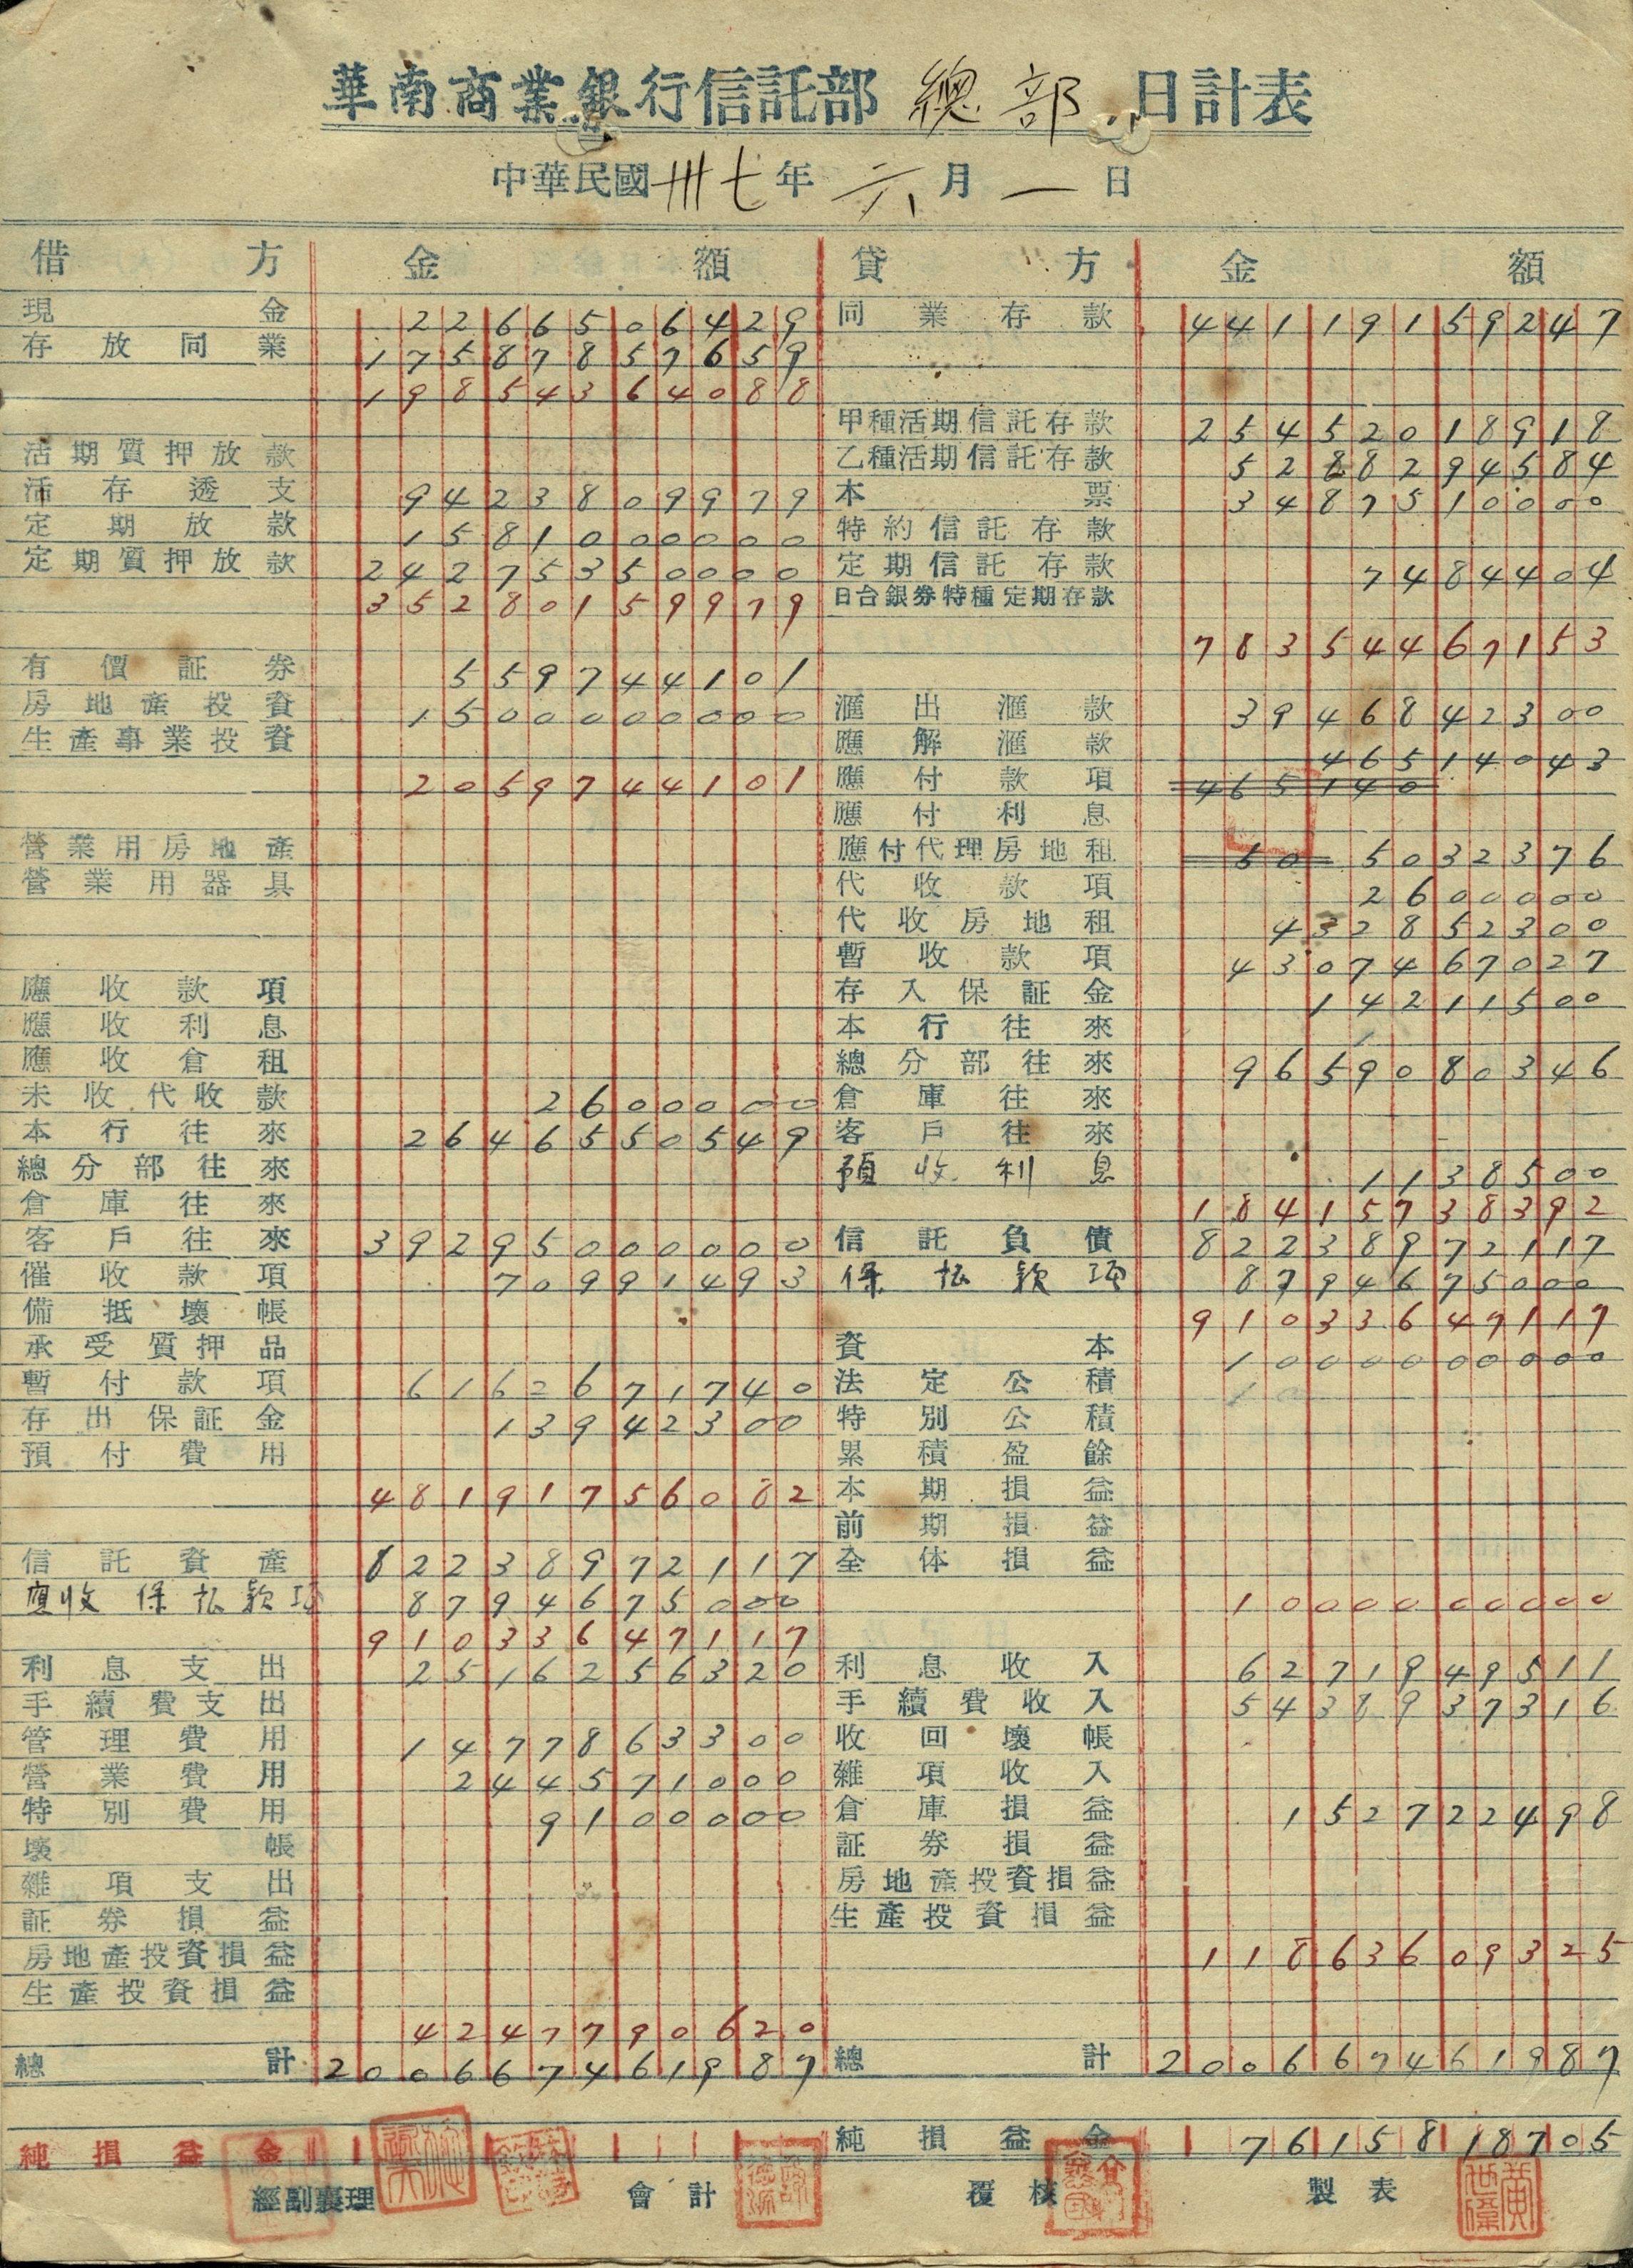 華南商業銀行信託部 總部 日計表
中華民國卅七年六月一日
借方 金額
現金 2266506429
存放同業 17587857659
19854364088
活期質押放款
活存透支 9423809979
定期放款 1581000000
定期質押放款 24275350000
35280159979
有價証券 559744101
房地產投資 1500000000
生產事業投資
2059744101
營業用房地產
營業用器具
應收款項
應收利息
應收倉租
未收代收款 2600000
本行往來 2646550549
總分部往來
倉庫往來
客戶往來 39295000000
催收款項 70991493
備抵壞帳
承受質押品
暫付款項 6162671740
存出保証金 13942300
預付費用
48191756082
信託資產 82238972117
應收保払款項 8794675000
91033647117
利息支出 2516256320
手續費支出
管理費用 1477863300
營業費用 244571000
特別費用 9100000
壞帳
雜項支出
証券損益
房地產投資損益
生產投資損益
4247790620
總計 200667461987
純損益金
貸方 金額
同業存款 44119159247
甲種活期信託存款 25452018918
乙種活期信託存款 5288294584
本票 3487510000
特約信託存款
定期信託存款 7484404
日台銀券特種定期存款
78354467153
滙出滙款 3946842300
應解滙款 46514043
應付款項 465140
應付利息
應付代理房地租 50 5032376
代收款項 2600000
代收房地租 432852300
暫收款項 4307467027
存入保証金 14211500
本行往來
總分部往來 9659080346
倉庫往來
客戶往來
預收利息 1138500
18415738392
信託負債 82238972117
保払款項 8794675000
91033647117
資本 1000000000
法定公積
特別公積
累積盈餘
本期損益
前期損益
全体損益
1000000000
利息收入 6271949511
手續費收入 5438937316
收回壞帳
雜項收入
倉庫損益 152722498
証券損益
房地產投資損益
生產投資損益
11863609325
總計 200667461987
純損益金 7615818705
經副襄理 會計 覆核 製表